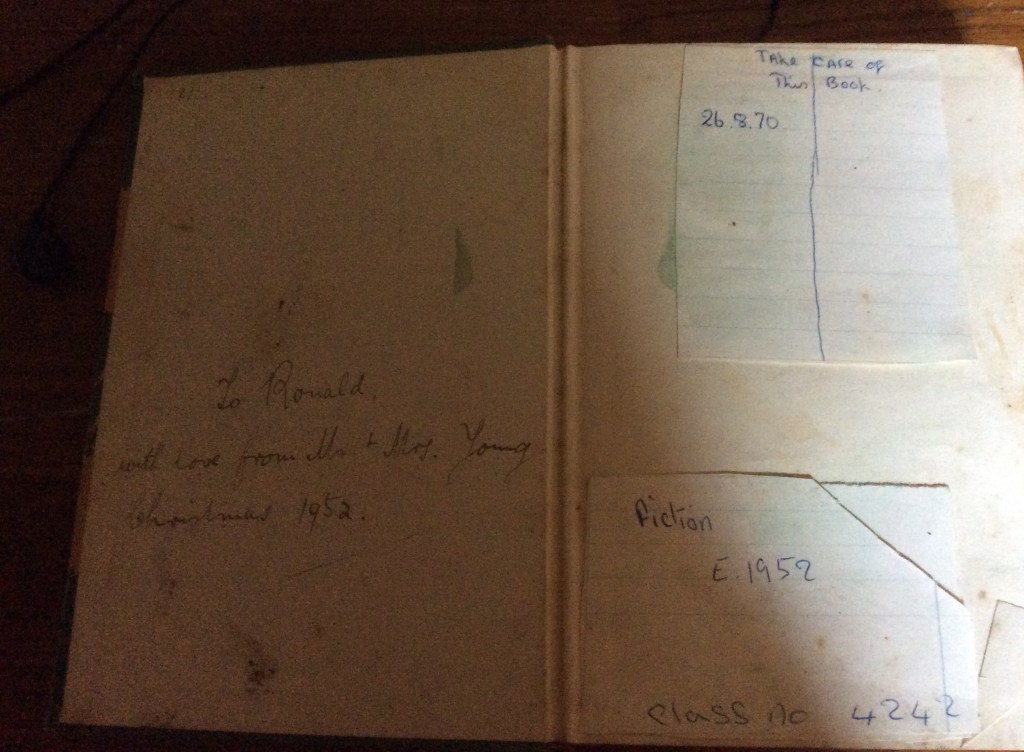 To Ronald,
with love from Mr. + Mrs. Young
Christmas 1952.
Take Care of
This Book.
26.8.70
Fiction
E.1952
Class no 4242